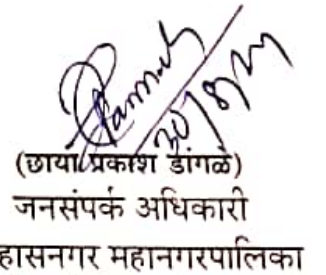 (छाया प्रकाश डांगळे)
जनसंपर्क अधिकारी
हासनगर महानगरपालिका